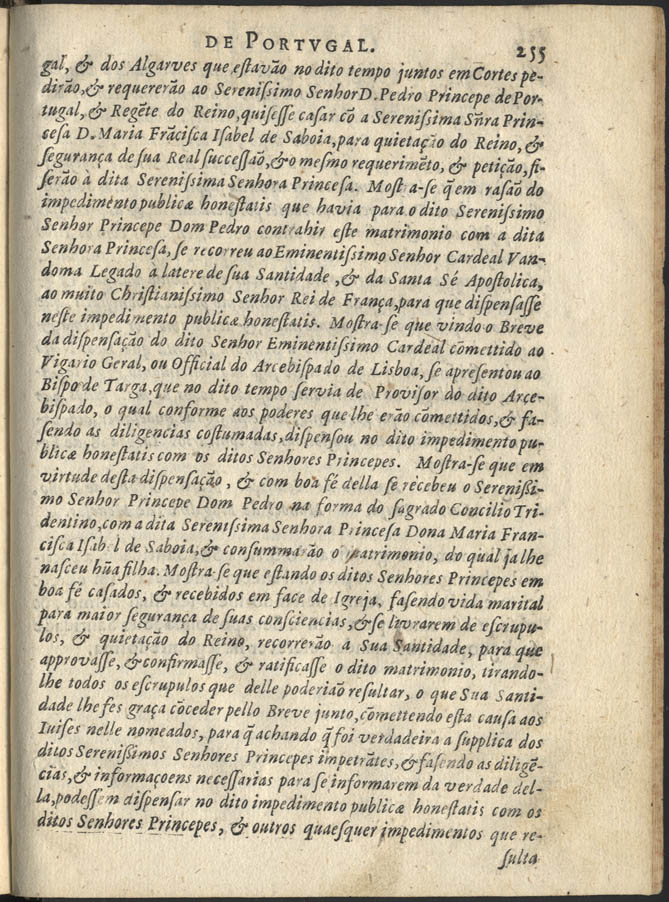 DE PORTVGAL. 255
gal, & dos Algarves que eſtavão no dito tempo juntos em Cortes pe-
dirão, & requererão ao Sereniſsimo Senhor D. Pedro Princepe de Por-
tugal, & Regẽte do Reino, quiſeſſe caſar cõ a Sereniſsima Sñra Prin-
ceſa D. Maria Frãciſca Iſabel de Saboia, para quietação do Reino, &
ſegurança de ſua Real ſucceſſaõ, & o meſmo requerimẽto, & petição, fi-
ſerão à dita Sereniſsima Senhora Princeſa. Moſtra-ſe q̃ em raſaõ do
impedimento publicæ honeſtatis que havia para o dito Sereniſsimo
Senhor Princepe Dom Pedro contrahir eſte matrimonio com a dita
Senhora Princeſa, ſe recorreu ao Eminentiſsimo Senhor Cardeal Van-
doma Legado à latere de ſua Santidade, & da Santa Sé Apoſtolica,
ao muito Chriſtianiſsimo Senhor Rei de França, para que diſpenſaſſe
neſte impedimento publicæ honeſtatis. Moſtra-ſe que vindo o Breve
da diſpenſação do dito Senhor Eminentiſsimo Cardeal cõmettido ao
Vigario Geral, ou Official do Arcebiſpado de Lisboa, ſe apreſentou ao
Biſpo de Targa, que no dito tempo ſervia de Proviſor do dito Arce-
biſpado, o qual conforme aos poderes que lhe erão cõmettidos, & fa-
ſendo as diligencias coſtumadas, diſpenſou no dito impedimento pu-
blicæ honeſtatis com os ditos Senhores Princepes. Moſtra-ſe que em
virtude deſta diſpenſação, & com boa fé della ſe recebeu o Sereniſsi-
mo Senhor Princepe Dom Pedro na forma do ſagrado Concilio Tri-
dentino, com a dita Sereniſsima Senhora Princeſa Dona Maria Fran-
ciſca Iſabel de Saboia, & conſummarão o matrimonio, do qual ja lhe
naſceu hũa filha. Moſtra-ſe que eſtando os ditos Senhores Princepes em
boa fé caſados, & recebidos em face de Igreja, faſendo vida marital
para maior ſegurança de ſuas conſciencias, & ſe livrarem de eſcrupu-
los, & quietação do Reino, recorrerão a Sua Santidade, para que
approvaſſe, & confirmaſſe, & ratificaſſe o dito matrimonio, tirando-
lhe todos os eſcrupulos que delle poderiaõ reſultar, o que Sua Santi-
dade lhe fes graça cõceder pello Breve junto, cõmettendo eſta cauſa aos
Iuiſes nelle nomeados, para q̃ achando q̃ foi verdadeira a ſupplica dos
ditos Sereniſsimos Senhores Princepes impetrãtes, & faſendo as diligẽ-
cias, & informaçoens neceſſarias para ſe informarem da verdade del-
la, podeſſem diſpenſar no dito impedimento publicæ honeſtatis com os
ditos Senhores Princepes, & outros quaeſquer impedimentos que re-
ſulta